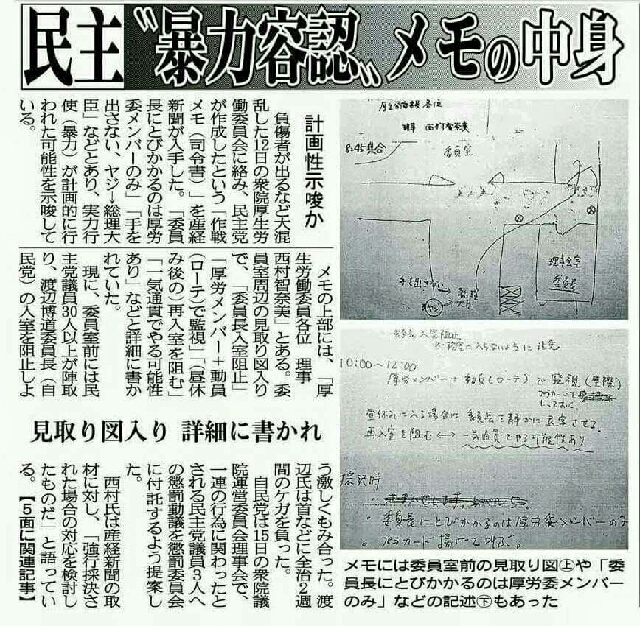 民主 〝暴力容認〟メモの中身
計画性示唆か
負傷者が出るなど大混
乱した12日の衆院厚生労
働委員会に絡み、民主党
が作成したという「作戦
メモ（司令書）」を産経
新聞が入手した。「委員
長にとびかかるのは厚労
委メンバーのみ」「手を
出さない、ヤジ→総理大
臣」などとあり、実力行
使（暴力）が計画的に行
われた可能性を示唆して
いる。
メモの上部には、「厚
生労働委員各位　理事
西村智奈美」とある。委
員室周辺の見取り図入り
で、「委員長入室阻止」
「厚労メンバー＋動員
（ローテ）で監視」「昼休
み後の）再入室を阻む」
「一気通貫でやる可能性
あり」などと詳細に書か
れていた。
現に、委員室前には民
主党議員30人以上が陣取
り、渡辺博道委員長（自
民党）の入室を阻止しよ
見取り図入り 詳細に書かれ
う激しくもみ合った。渡
辺氏は首などに全治2週
間のケガを負った。
自民党は15日の衆院議
院運営委員会理事会で、
一連の行為に関わったと
される民主党議員3人へ
の懲罰動議を懲罰委員会
に付託するよう提案し
た。
西村氏は産経新聞の取
材に対し、「強行採決さ
れた場合の対応を検討し
たものだ」と語ってい
る。【5面に関連記事】
8:45集合
委員室
理事会室
10:00〜12:00
厚労メンバー＋動員(ローテ)で監視
再入室を阻む
一気通貫でやる可能性あり
採決時
委員長にとびかかるのは厚労委メンバーのみ
メモには委員室前の見取り図㊤や「委
員長にとびかかるのは厚労委メンバー
のみ」などの記述㊦もあった